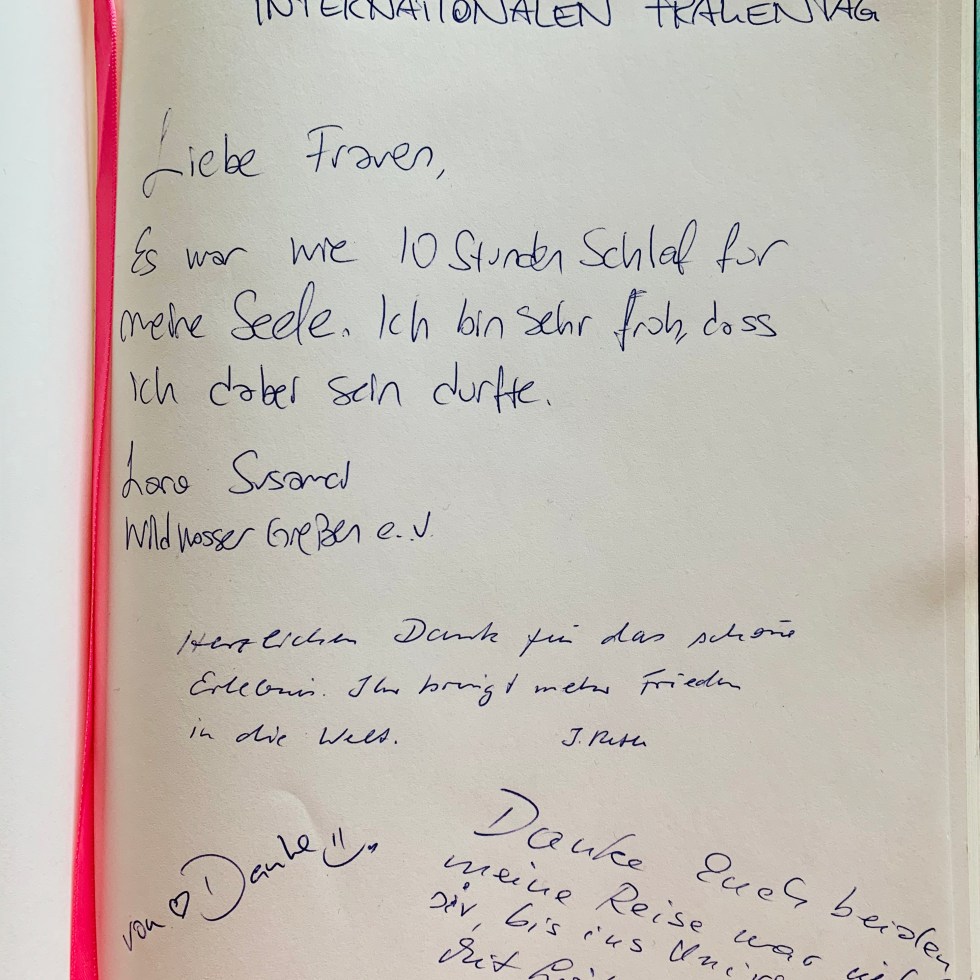 INTERNATIONALEN FRAUENTAG
Liebe Frauen,
Es war wie 10 Stunden Schlaf für
meine Seele. Ich bin sehr froh, dass
ich dabei sein durfte.
Wildwasser Gießen e.V.
Herzlichen Dank für das schöne
Erlebnis. Ihr bringt mehr Frieden
in die Welt.
von ♡ Danke
Danke Euch beiden,
meine Reise war
bis ins